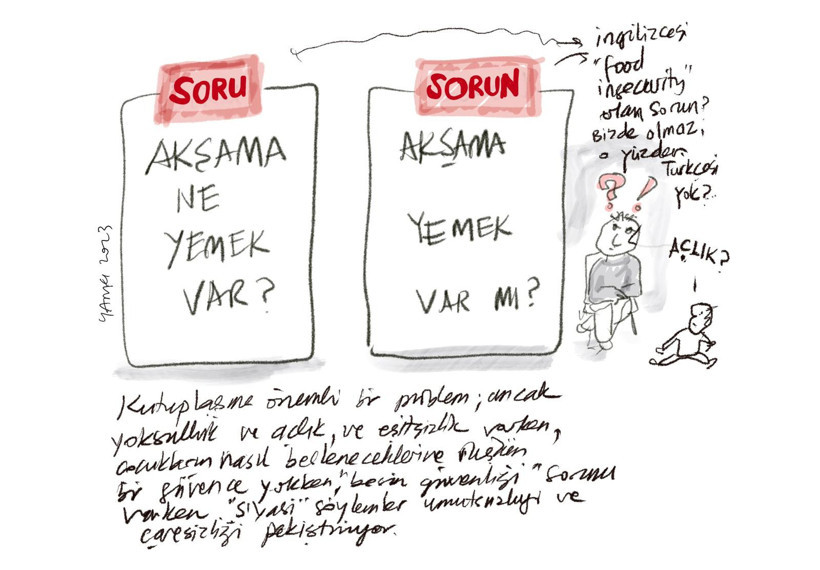 SORU
AKŞAMA
NE
YEMEK
VAR?
SORUN
AKŞAMA
YEMEK
VAR MI?
ingilizcesi
"food
insecurity"
olan sorun?
Bizde olmaz,
o yüzden
Türkçesi
yok?
?!
AÇLIK?
YANKI 2023
Kutuplaşma önemli bir problem; ancak
yoksulluk ve açlık, ve eşitsizlik varken,
çocukların nasıl besleneceklerine ilişkin
bir güvence yokken, "besin güvenliği" sorunu
varken "siyasi" söylemler umutsuzluğu ve
çaresizliği pekiştiriyor.